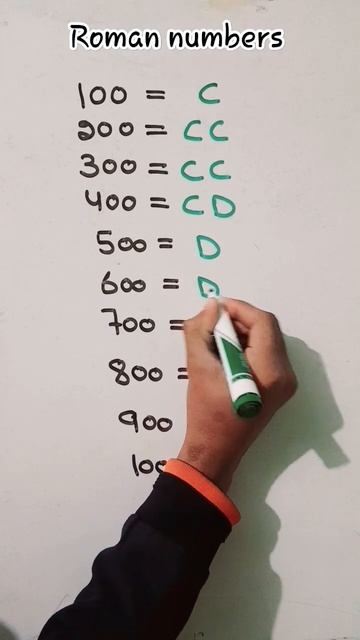 Roman numbers
100 = C
200 = CC
300 = CC
400 = CD
500 = D
600 = D
700 =
800 =
900
100